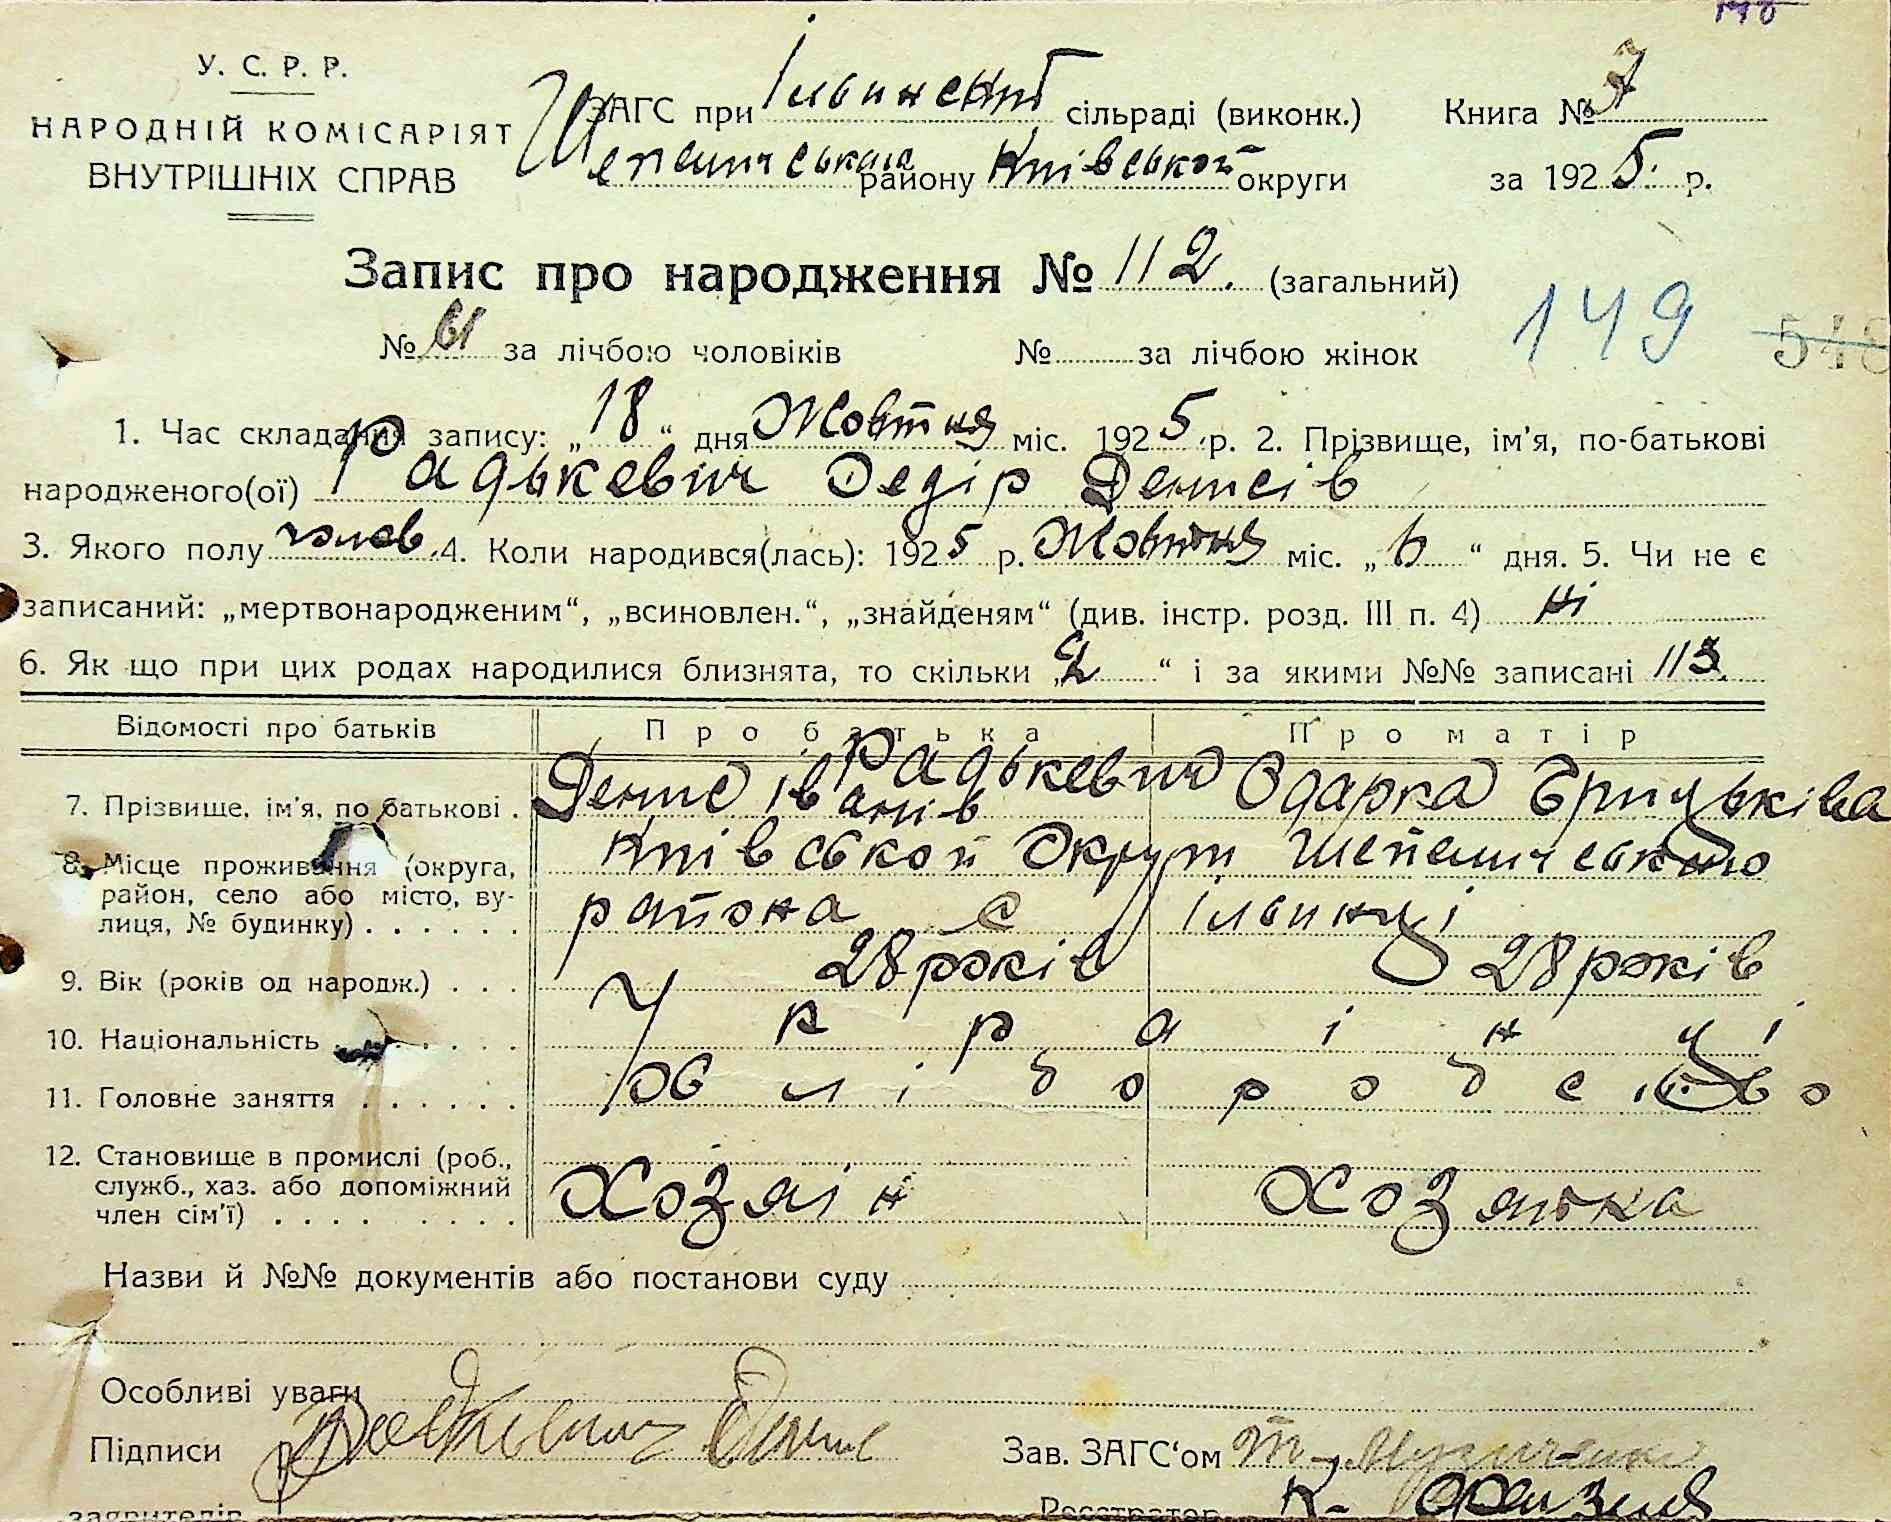 У. С. Р. Р.
НАРОДНІЙ КОМІСАРІЯТ
ВНУТРІШНІХ СПРАВ
ЗАГС при сільраді (виконк.)
району Київської округи
Книга № 7
за 1925 р.
Запис про народження № 112. (загальний)
№ 61 за лічбою чоловіків № за лічбою жінок
149
548
1. Час складання запису: „18“ дня Жовтня міс. 1925 р. 2. Прізвище, ім'я, по-батькові
народженого(ої) Радькевич Федір Денисів
3. Якого полу чолов. 4. Коли народився(лась): 1925 р. Жовтня міс. „6“ дня. 5. Чи не є
записаний: „мертвонародженим“, „всиновлен.“, „знайденям“ (див. інстр. розд. III п. 4) ні
6. Як що при цих родах народилися близнята, то скільки „2“ і за якими №№ записані 113.
Відомості про батьків Про батька Про матір
Радькевич
7. Прізвище, ім'я, по батькові . Денис Іванів Одарка Грицьківа
8. Місце проживання (округа, район, село або місто, вулиця, № будинку) . . . . . . Київської Округи Шепеличського
района с Ільинці
9. Вік (років од народж.) . . . 28 років 28 років
10. Національність . . . . . . Українці
11. Головне заняття . . . . . . хліборобство
12. Становище в промислі (роб.,
служб., хаз. або допоміжний
член сім'ї) . . . . . . . . Хозяїн Хозяйка
Назви й №№ документів або постанови суду
Особливі уваги
Підписи Радкевич Денис
заявителів
Зав. ЗАГС'ом
Реєстратор К.